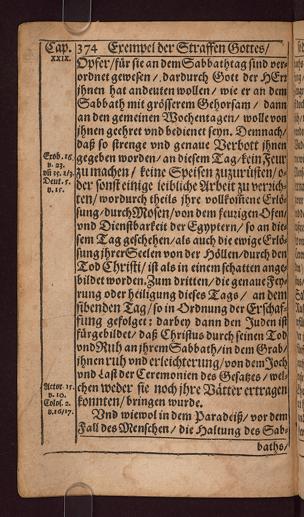 Cap.
XXIX.
374 Exempel der Straffen Gottes/
Opfer/für sie an dem Sabbathtag sind ver-
ordnet gewesen/dardurch Gott der HErr
jhnen hat andeuten wollen/wie er an dem
Sabbath mit grösserem Gehorsam/dann
an den gemeinen Wochentagen/wolle von
jhnen geehret vnd bedienet seyn. Demnach/
daß so strenge vnd genaue Verbott jhnen
gegeben worden/an diesem Tag/kein Feur
zu machen/keine Speisen zuzurüsten/o-
der sonst einige leibliche Arbeit zu verrich-
ten/wordurch theils jhre vollkom̃ene Erlö-
sung/durch Mosen/von dem feurigen Ofen/
vnd Dienstbarkeit der Egyptern/so an die-
sem Tag geschehen/als auch die ewige Erlö-
sung jhrer Seelen von der Höllen/durch den
Tod Christi/ist als in einem schatten ange-
bildet worden. Zum dritten/die genaue Fey-
rung oder heiligung dieses Tags/an dem
sibenden Tag/so in Ordnung der Erschaf-
fung gefolget: darbey dann den Juden ist
fürgebildet/daß Christus durch seinen Tod
vnd Ruh an jhrem Sabbath/in dem Grab/
jhnen ruh vnd erleichterung/von dem Joch
vnd Last der Ceremonien des Gesatzes/wel-
chen weder sie noch jhre Vätter ertragen
konnten/bringen wurde.
Vnd wiewol in dem Paradeiß/vor dem
Fall des Menschen/die Haltung des Sab-
baths/
Exob. 16.
v. 23.
Deut. 5.
v. 15.
Actor. 15.
v. 10.
Coloss. 2.
v. 16/17.